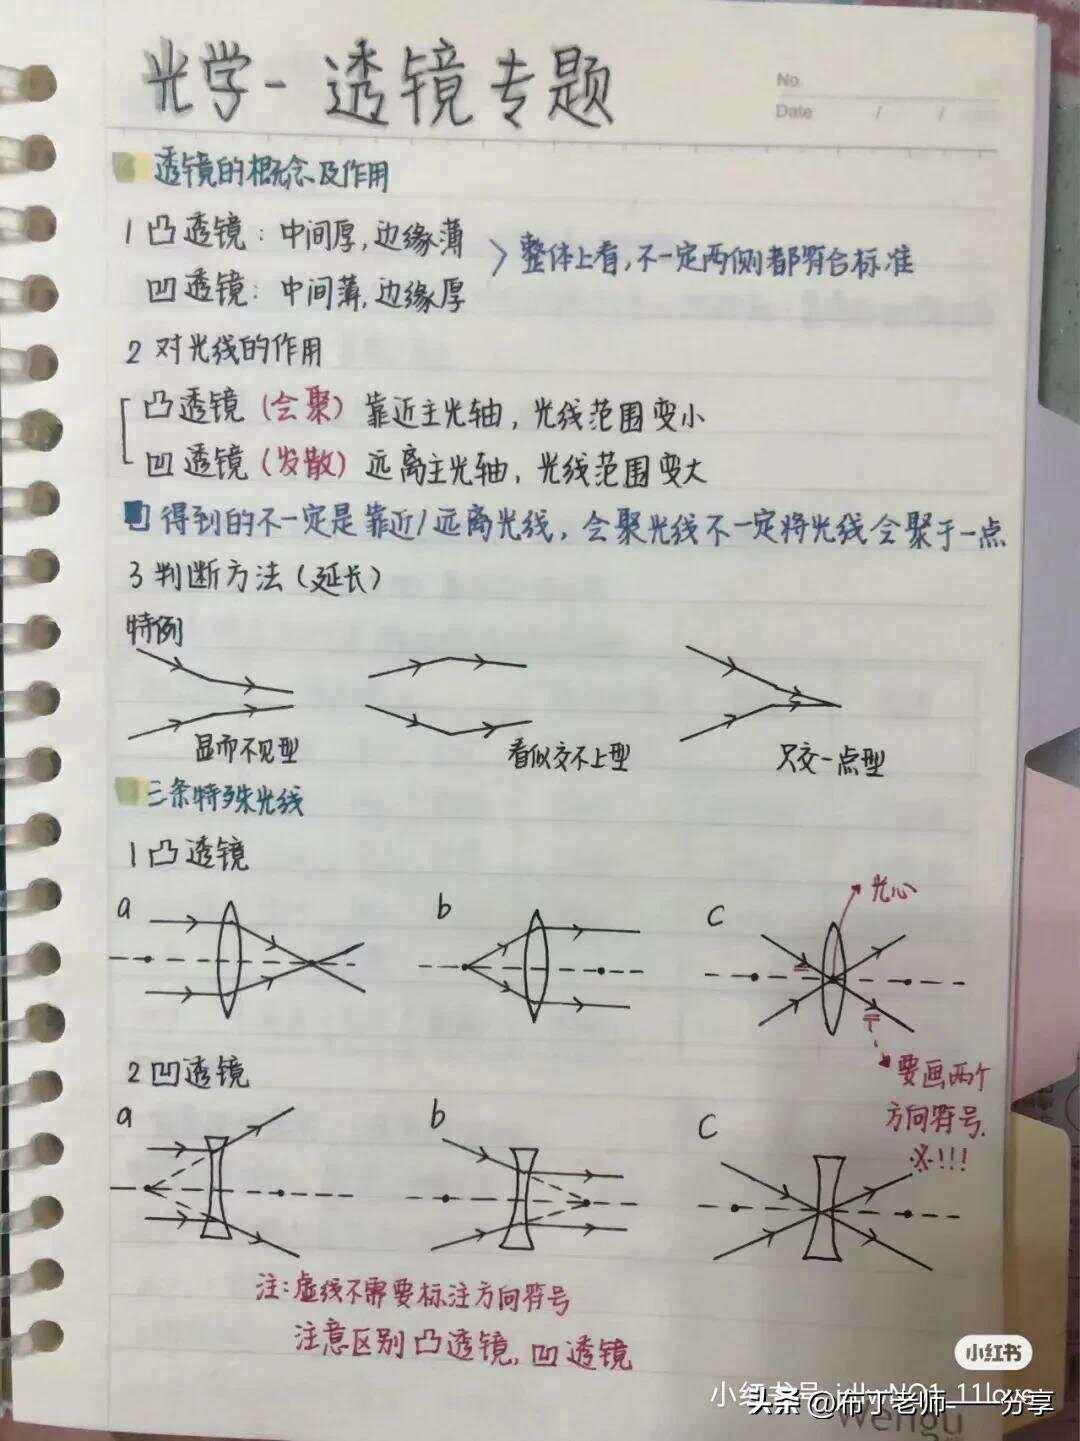 光学-透镜专题
No.
Date / /
透镜的概念及作用
1 凸透镜：中间厚,边缘薄
凹透镜：中间薄,边缘厚
整体上看,不一定两侧都符合标准
2 对光线的作用
凸透镜(会聚)靠近主光轴,光线范围变小
凹透镜(发散)远离主光轴,光线范围变大
得到的不一定是靠近/远离光线,会聚光线不一定将光线会聚于一点
3 判断方法(延长)
特例
显而不见型
看似交不上型
只交一点型
三条特殊光线
1 凸透镜
a
b
c
光心
要画两个
方向符号.
※!!!
2 凹透镜
a
b
c
注:虚线不需要标注方向符号
注意区别凸透镜,凹透镜
小红书
小红书号
头条@布丁老师-----分享
Wengu